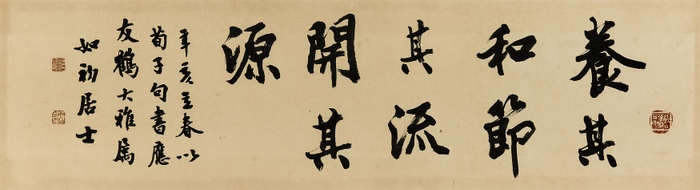 養其
和節
其流
開其
源
辛亥立春以
荀子句書應
友鶴大雅屬
如初居士